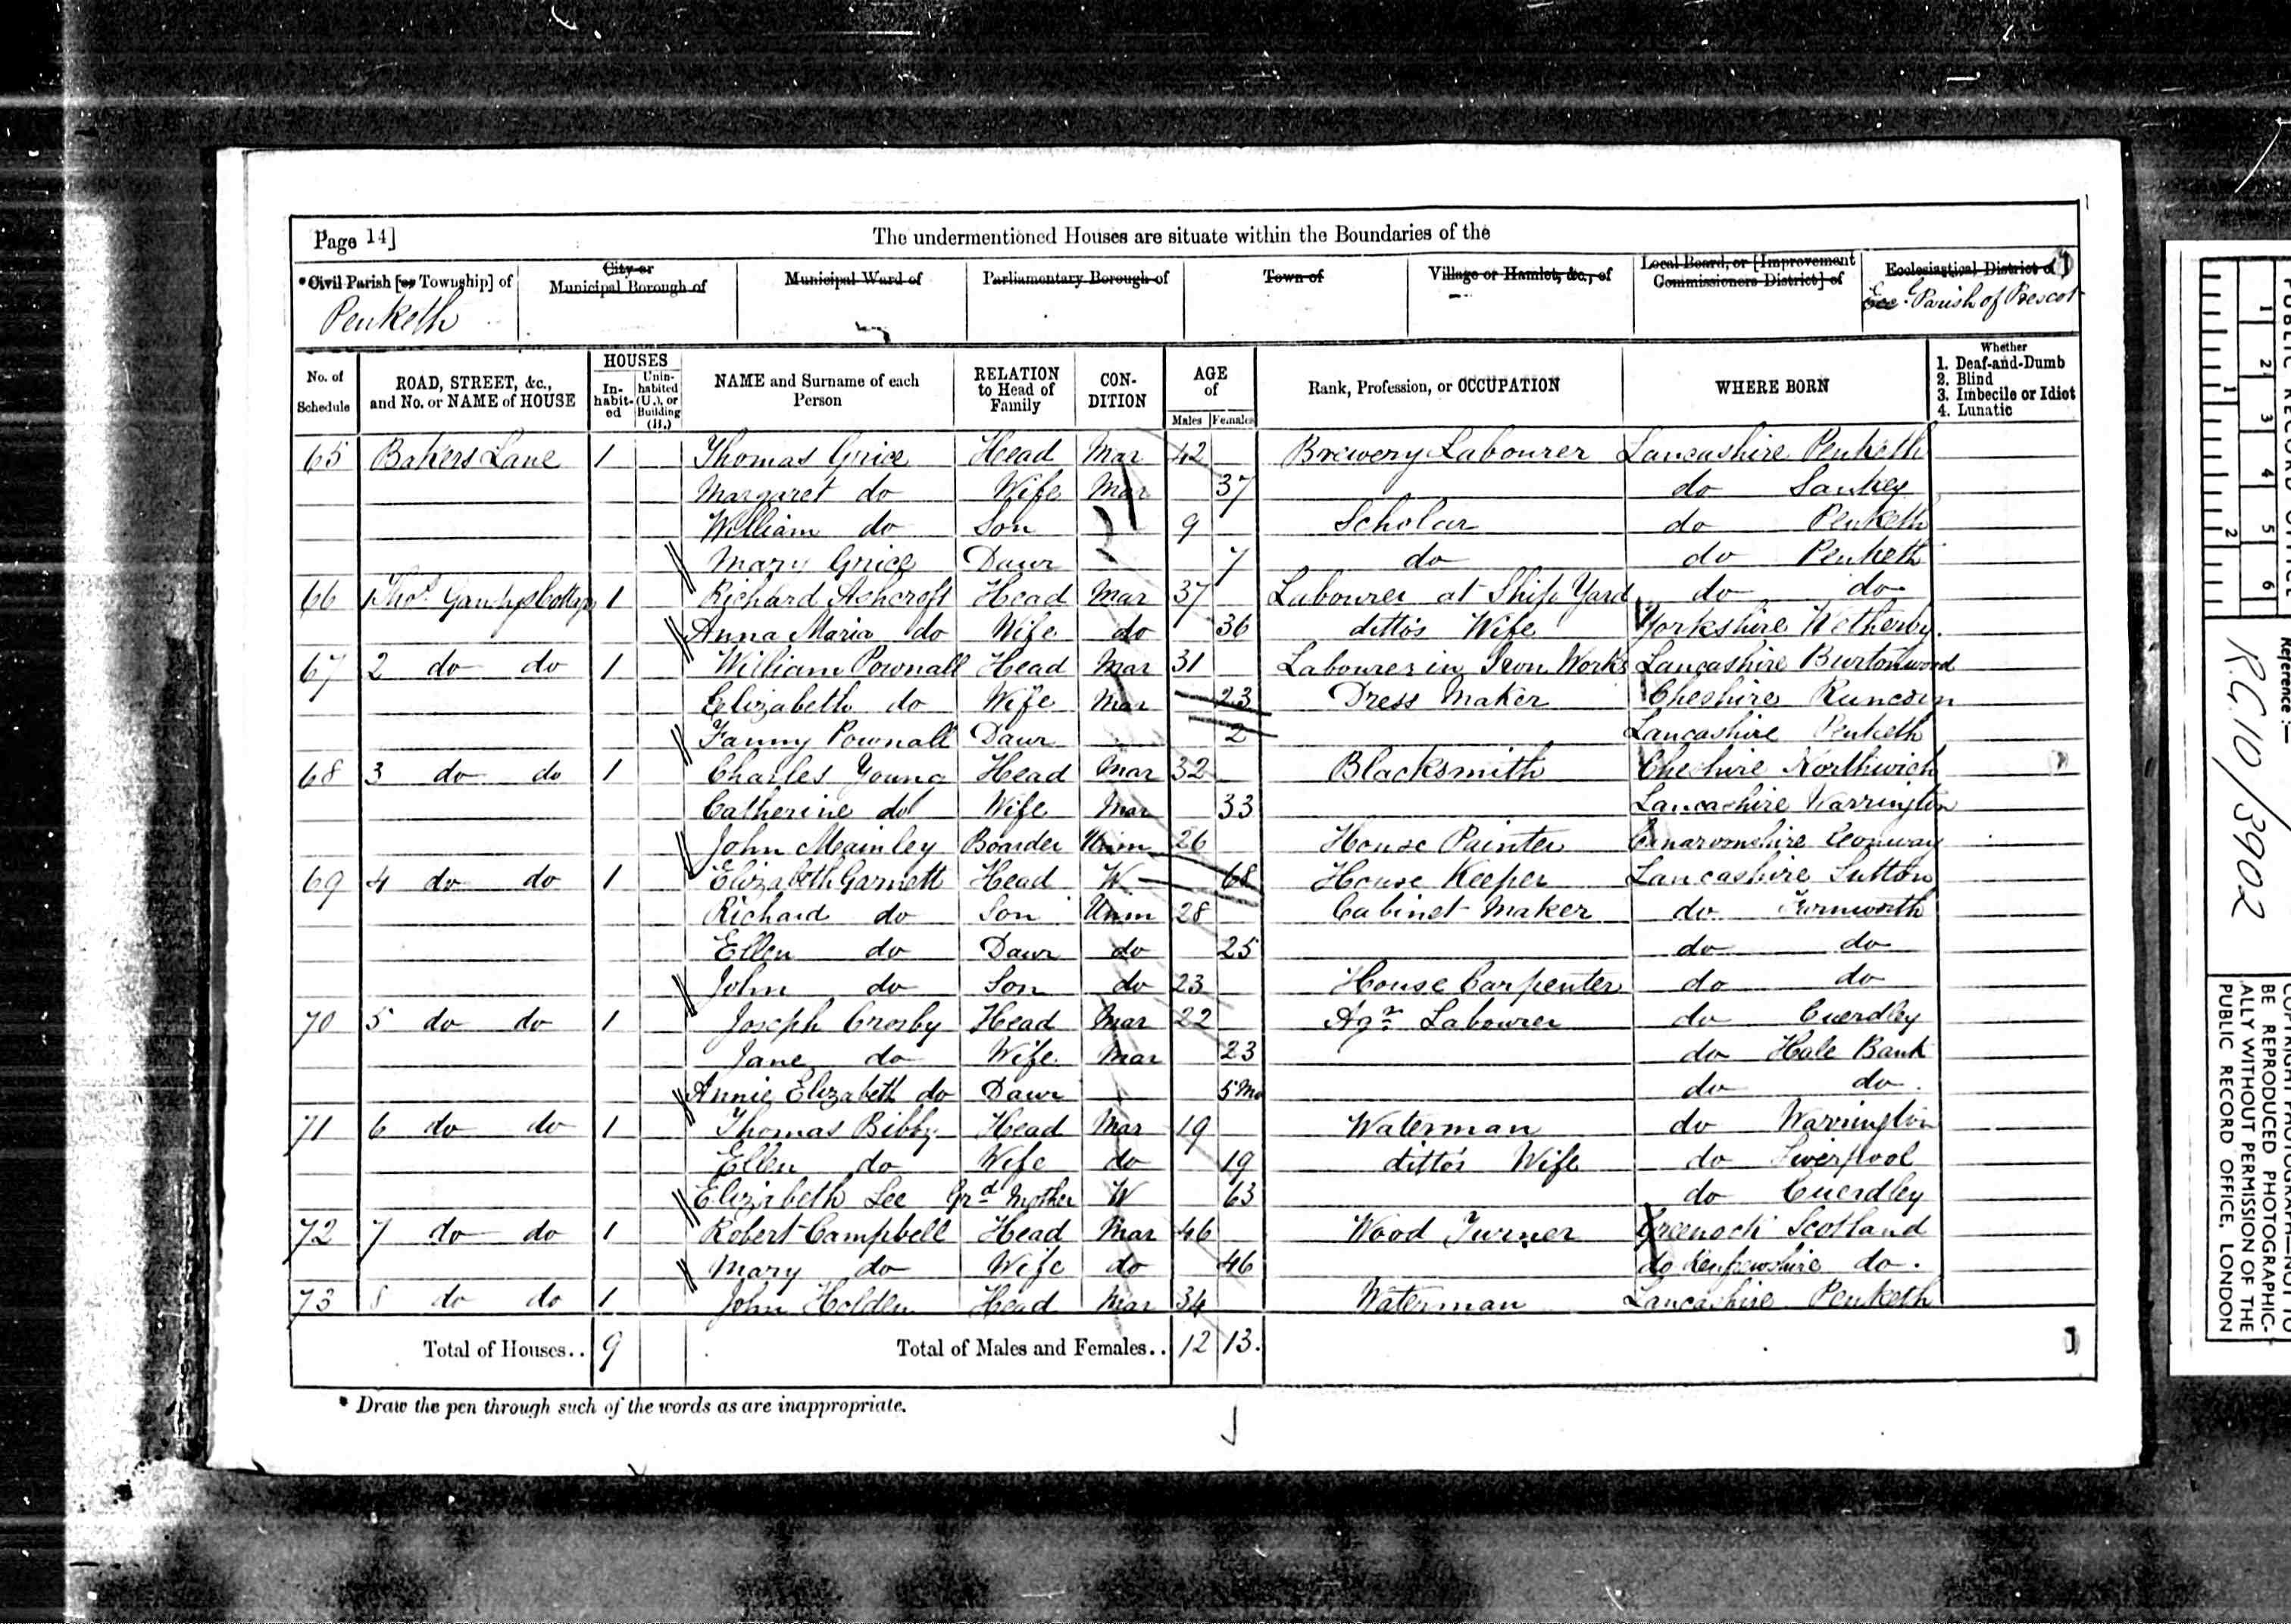 Page 14]
The undermentioned Houses are situate within the Boundaries of the
* Civil Parish [or Township] of
City or Municipal Borough of
Municipal Ward of
Parliamentary Borough of
Town of
Village or Hamlet, &c., of
Local Board, or [Improvement Commissioners District] of
Ecclesiastical District of
Penketh
Parish of Prescot
No. of Schedule
ROAD, STREET, &c., and No. or NAME of HOUSE
HOUSES
In-habit-ed
Unin-habited (U.), or Building (B.)
NAME and Surname of each Person
RELATION to Head of Family
CON-DITION
AGE of
Males
Females
Rank, Profession, or OCCUPATION
WHERE BORN
Whether
1. Deaf-and-Dumb
2. Blind
3. Imbecile or Idiot
4. Lunatic
65 Bakers Lane 1 Thomas Grice Head Mar 42 Brewery Labourer Lancashire Penketh
Margaret do Wife Mar 37 do Sankey
William do Son 9 Scholar do Penketh
Mary Grice Dawr 7 do do Penketh
66 1 Thos. 1 Richard Ashcroft Head Mar 37 Labourer at Ship Yard do do
Anna Maria do Wife do 36 ditto's Wife Yorkshire Wetherby.
67 2 do do 1 William Pownall Head Mar 31 Labourer in Iron Works Lancashire Burtonwood
Elizabeth do Wife Mar 23 Dress Maker Cheshire Runcorn
Fanny Pownall Dawr 2 Lancashire Penketh
68 3 do do 1 Charles Young Head Mar 32 Blacksmith Cheshire Northwich
Catherine do Wife Mar 33 Lancashire Warrington
John Mainley Boarder Unm 26 House Painter Conway
69 4 do do 1 Elizabeth Garnett Head W 68 House Keeper Lancashire Sutton
Richard do Son Unm 28 Cabinet Maker do Farnworth
Ellen do Dawr do 25 do do
John do Son do 23 House Carpenter do do
70 5 do do 1 Joseph Crosby Head Mar 22 Agr. Labourer do Cuerdley
Jane do Wife Mar 23 do Hale Bank
Annie Elizabeth do Dawr 5 Mo do do.
71 6 do do 1 Thomas Bibby Head Mar 19 Waterman do Warrington
Ellen do Wife do 19 ditto's Wife do Liverpool
Elizabeth Lee Grd. Mother W 63 do Cuerdley
72 7 do do 1 Robert Campbell Head Mar 46 Wood Turner Greenock Scotland
Mary do Wife do 46 do Renfrewshire do.
73 8 do do 1 John Holden Head Mar 34 Waterman Lancashire Penketh
Total of Houses.. 9
Total of Males and Females.. 12 13.
* Draw the pen through such of the words as are inappropriate.
1 2 3 4 5 6
1 2
PUBLIC RECORD OFFICE
Reference :-
R.G. 10/3902
COPYRIGHT PHOTOGRAPH—NOT TO
BE REPRODUCED PHOTOGRAPHIC-
ALLY WITHOUT PERMISSION OF THE
PUBLIC RECORD OFFICE, LONDON